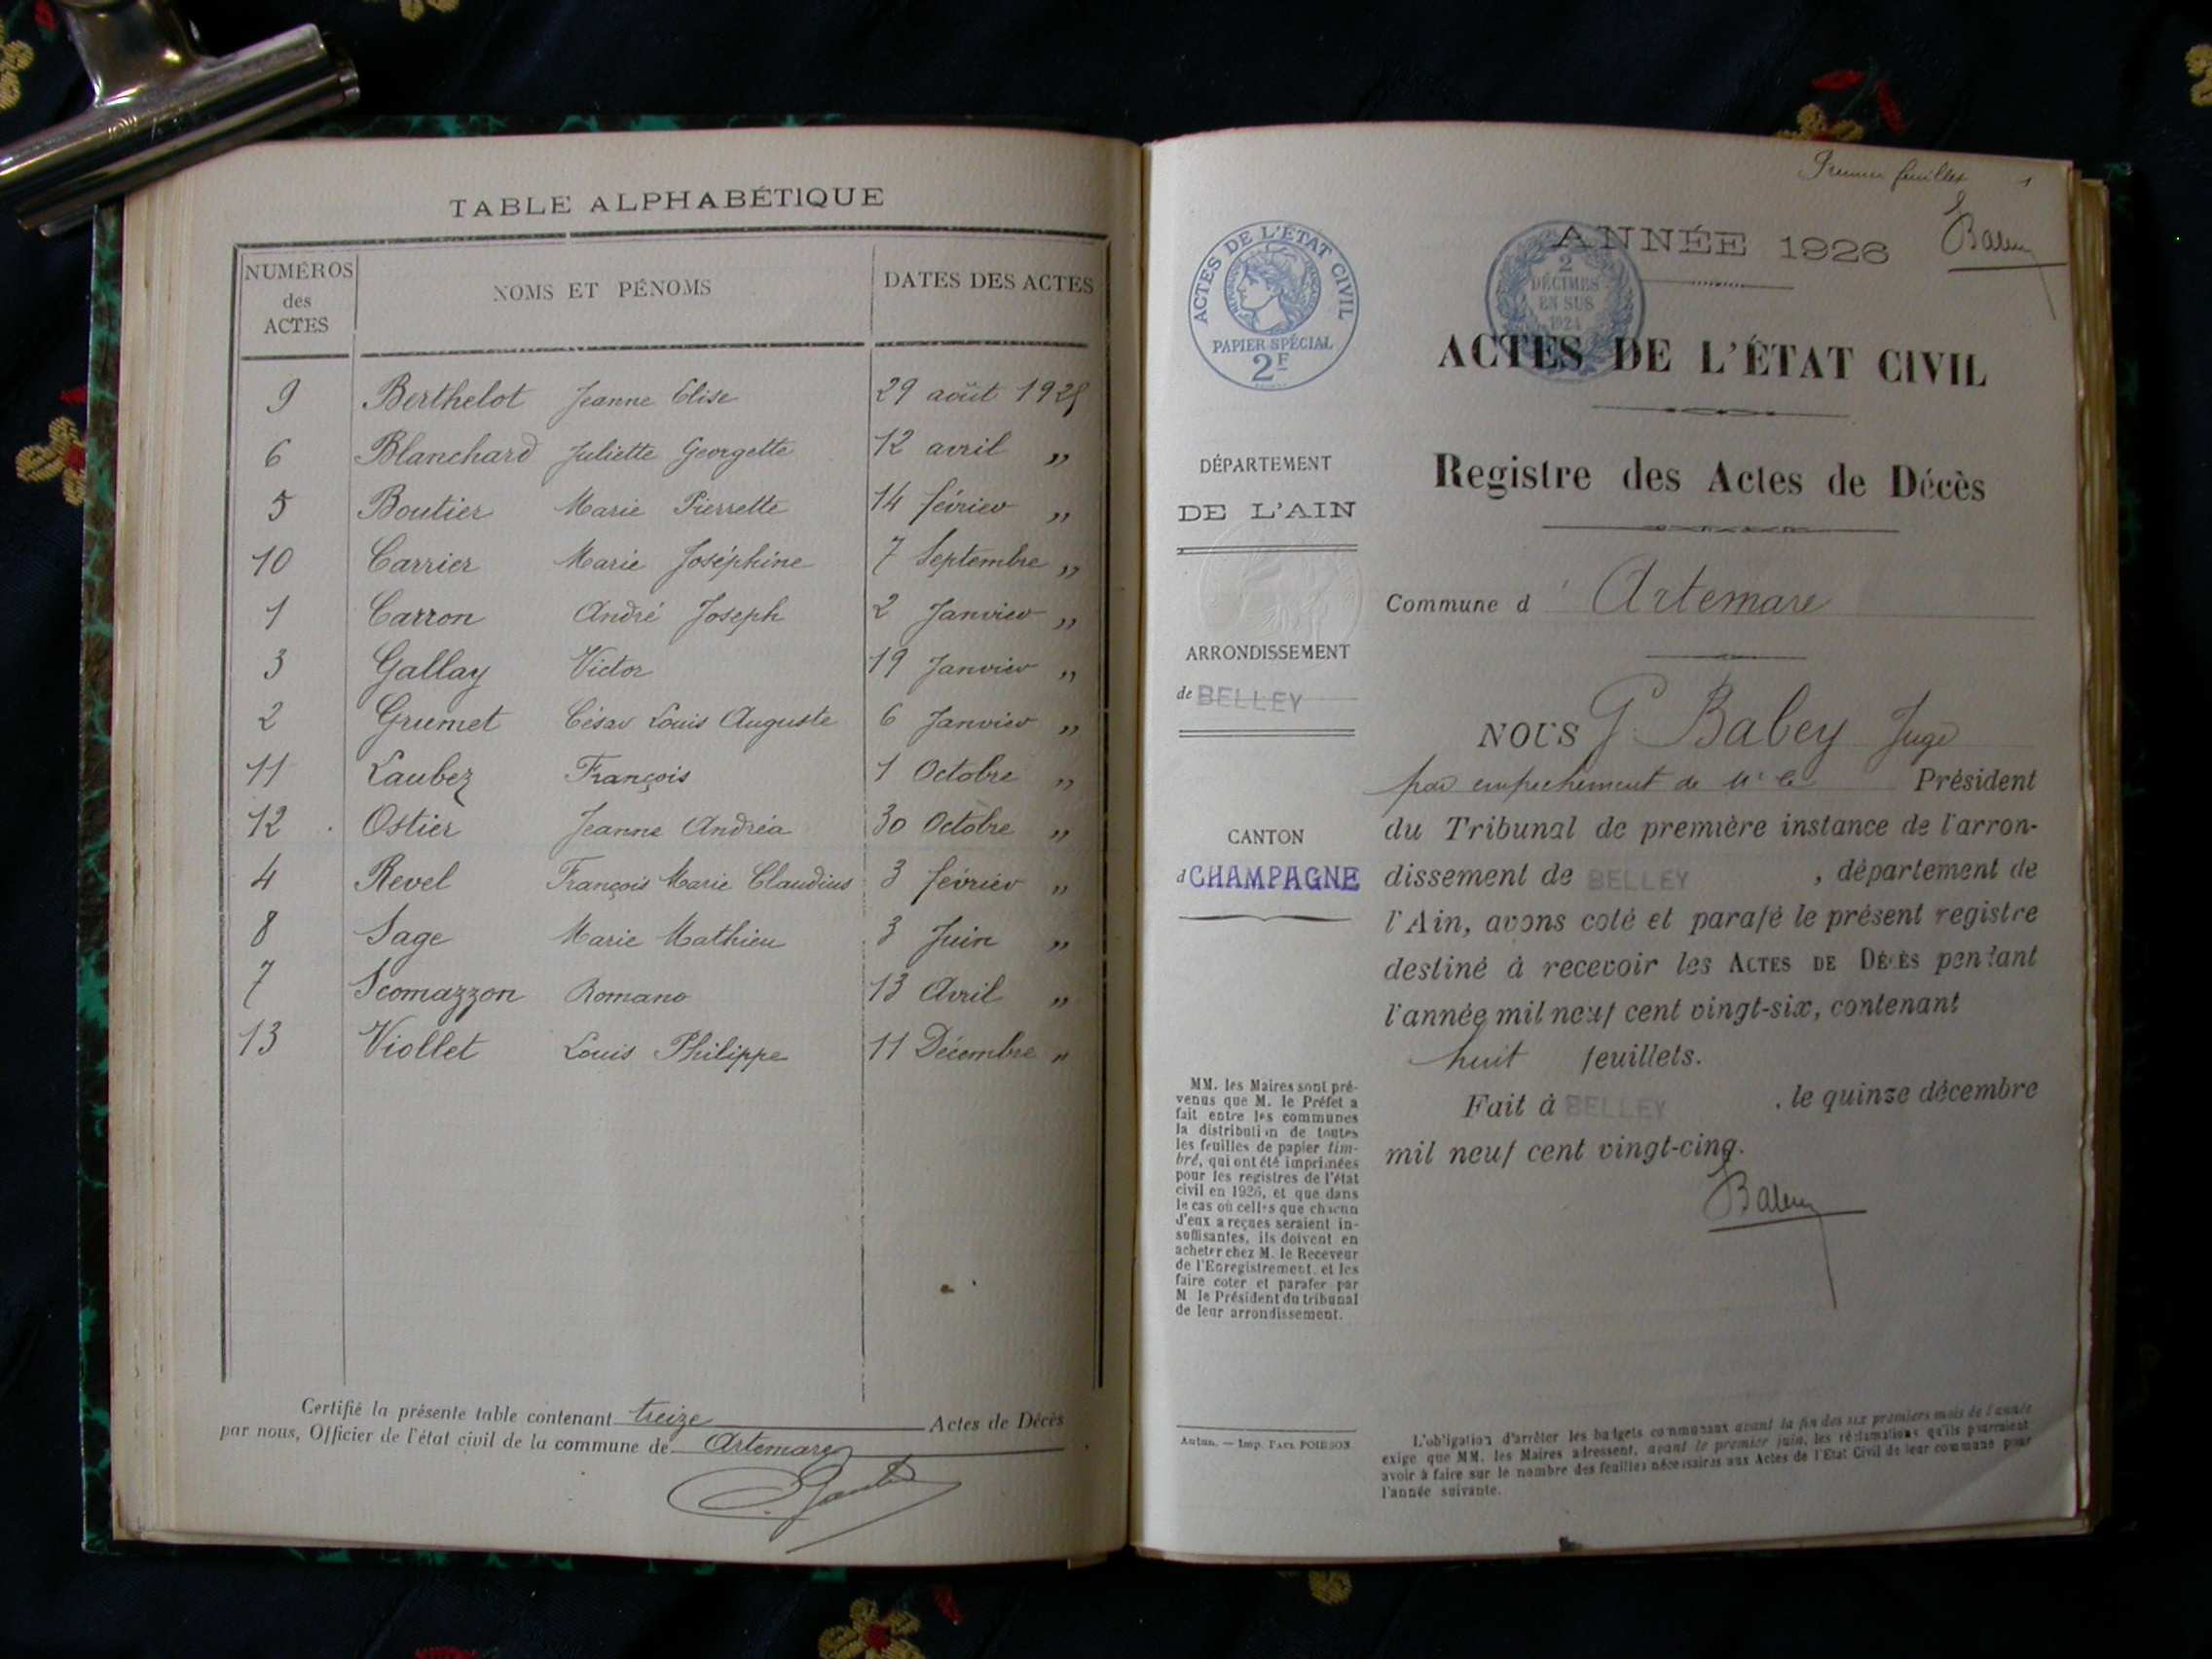 TABLE ALPHABÉTIQUE
NUMÉROS des ACTES
NOMS ET PÉNOMS
DATES DES ACTES
9 Berthelot Jeanne Elise 29 août 1925
6 Blanchard Juliette Georgette 12 avril „
5 Boutier Marie Pierrette 14 février „
10 Carrier Marie Joséphine 7 Septembre „
1 Carron André Joseph 2 Janvier „
3 Gallay Victor 19 Janvier „
2 Grumet César Louis Auguste 6 Janvier „
11 Laubez François 1 Octobre „
12 Ostier Jeanne Andréa 30 Octobre „
4 Revel François Marie Claudius 3 février „
8 Sage Marie Mathieu 3 Juin „
7 Scomazzon Romano 13 Avril „
13 Viollet Louis Philippe 11 Décembre „
Certifié la présente table contenant treize Actes de Décès
par nous, Officier de l'état civil de la commune de Artemare
Premier feuillet 1
Babey
ACTES DE L'ÉTAT CIVIL
RÉPUBLIQUE FRANÇAISE
PAPIER SPÉCIAL
2F
2
DÉCIMES
EN SUS
1924
ANNÉE 1926
ACTES DE L'ÉTAT CIVIL
Registre des Actes de Décès
DÉPARTEMENT
DE L'AIN
ARRONDISSEMENT
de BELLEY
CANTON
d CHAMPAGNE
MM. les Maires sont pré-
venus que M. le Préfet a
fait entre les communes
la distribution de toutes
les feuilles de papier tim-
bré, qui ont été imprimées
pour les registres de l'état
civil en 1926, et que dans
le cas où celles que chacun
d'eux a reçues seraient in-
suffisantes, ils doivent en
acheter chez M. le Receveur
de l'Enregistrement, et les
faire coter et parafer par
M le Président du tribunal
de leur arrondissement.
Autun. — Imp. Paul POIRSON
Commune d' Artemare
NOUS G. Babey Juge
par empechement de Mr le Président
du Tribunal de première instance de l'arron-
dissement de BELLEY , département de
l'Ain, avons coté et parafé le présent registre
destiné à recevoir les ACTES DE DÉCÈS pendant
l'année mil neuf cent vingt-six, contenant
huit feuillets.
Fait à BELLEY , le quinze décembre
mil neuf cent vingt-cinq.
Babey
L'obligation d'arrêter les budgets communaux avant la fin des six premiers mois de l'année
exige que MM. les Maires adressent, avant le premier juin, les réclamations qu'ils pourraient
avoir à faire sur le nombre des feuilles nécessaires aux Actes de l'Etat Civil de leur commune pour
l'année suivante.